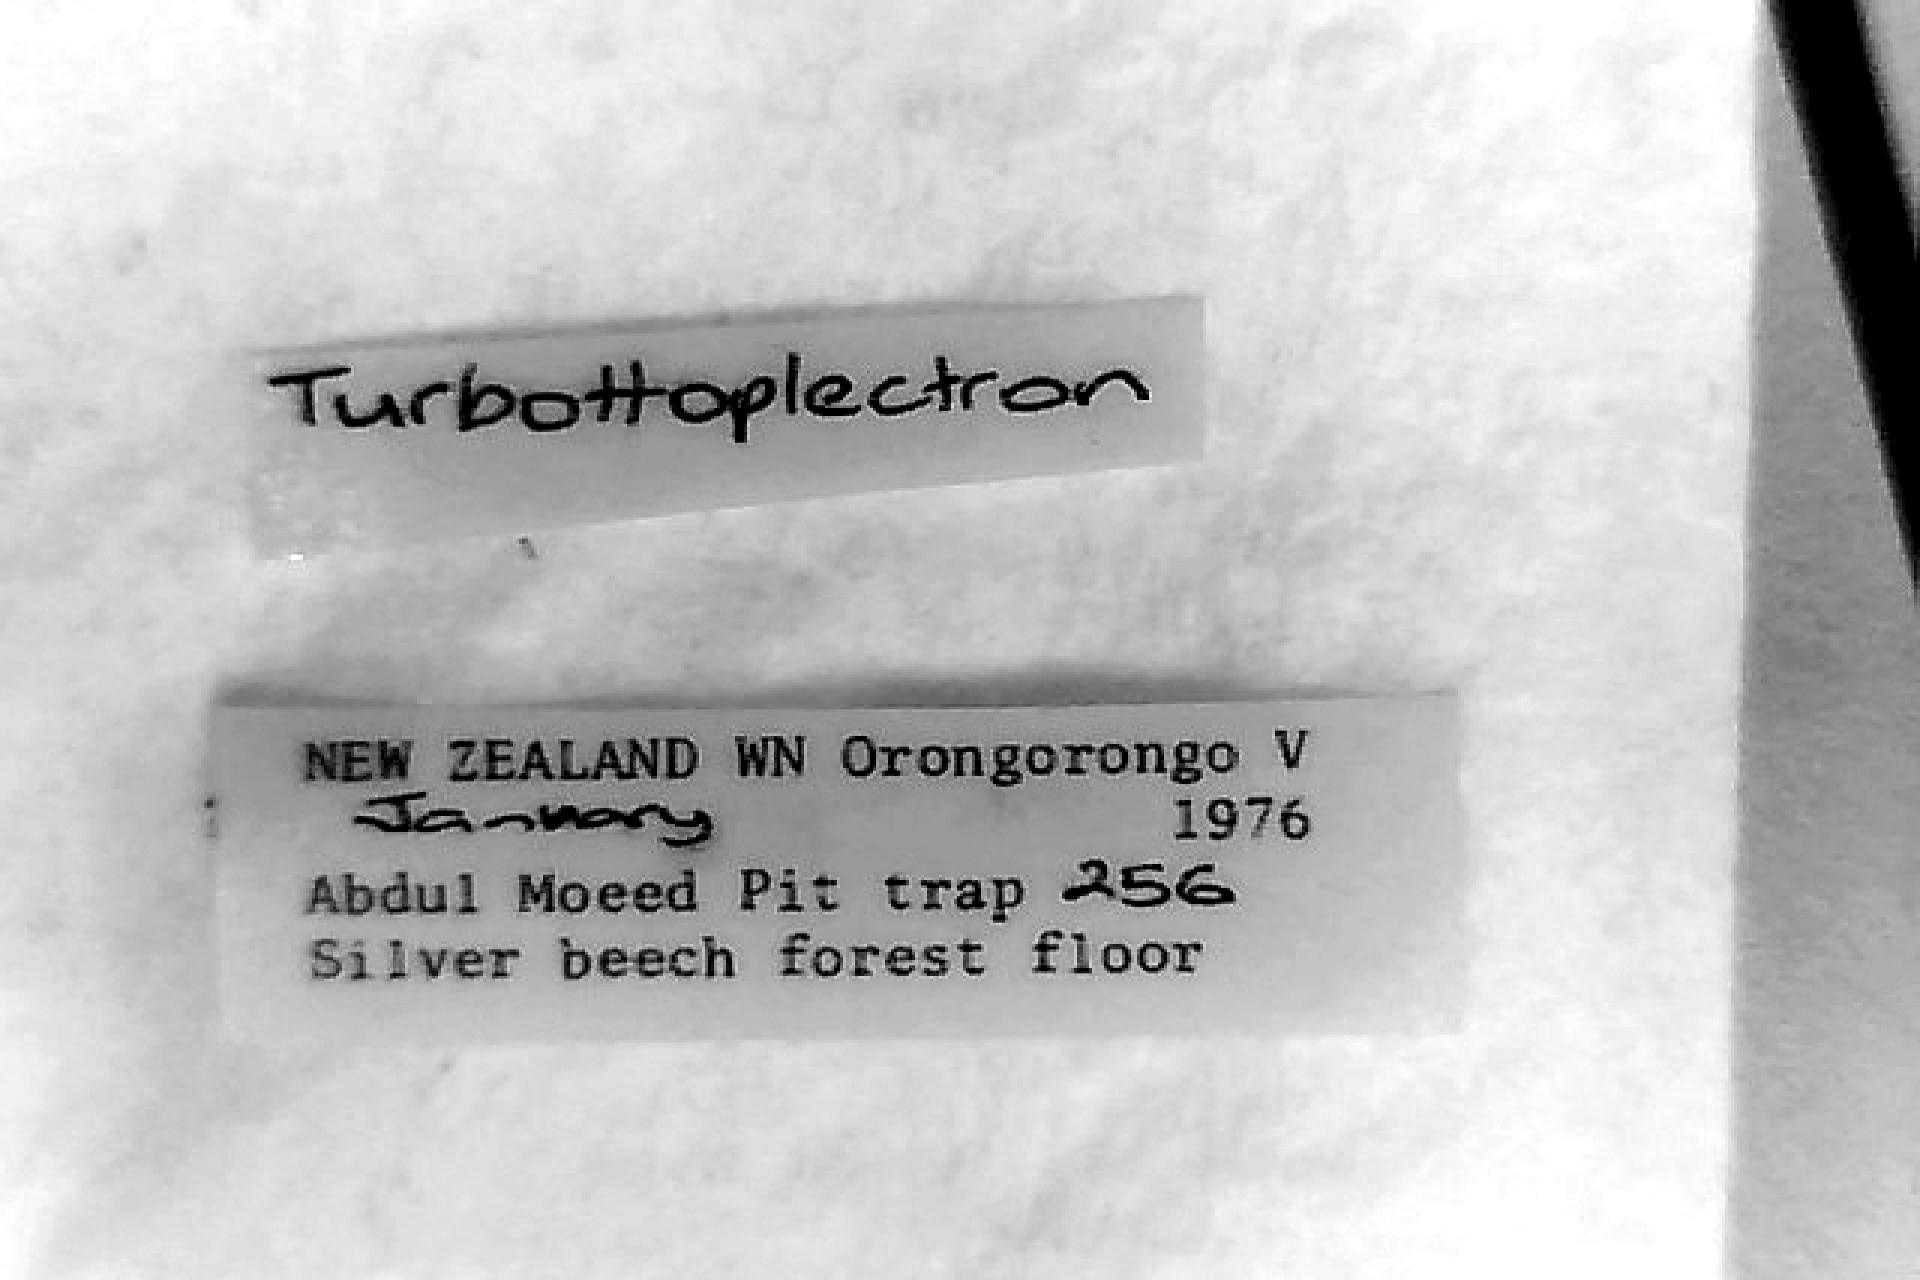 Turbottoplectron
NEW ZEALAND WN Orongorongo V
January 1976
Abdul Moeed Pit trap 256
Silver beech forest floor